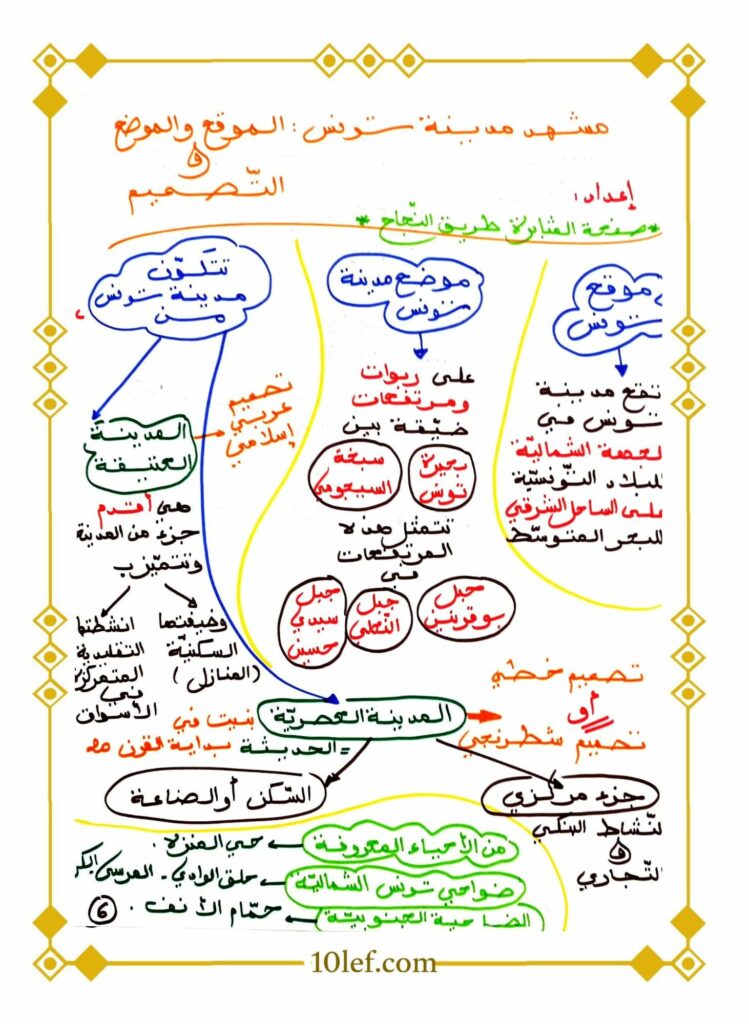 مشهد مدينة تونس: الموقع والموضع
و
التّصميم
إعداد:
*صفحة المثابرة طريق النّجاح*
موقع
تونس
تقع مدينة
تونس في
الشماليّة
للبلاد التّونسيّة
على الساحل الشرقي
للبحر المتوسّط
موضع مدينة
تونس
على ربوات
ومرتفعات
ضيّقة بين
بحيرة
تونس
سبخة
السيجومي
تتمثل هذه
المرتفعات
في
جبل
بوقرنين
جبل
جبل
سيدي
حسين
تتكوّن
مدينة تونس
من
المدينة
العتيقة
تصميم
عربي
إسلامي
هي أقدم
جزء من المدينة
وتتميّز ب
وظيفتها
السكنيّة
(المنازل)
انشطتها
التقليدية
المتمركزة
في
الأسواق
المدينة العصريّة
= الحديثة
بنيت في
بداية القرن 20
تصميم خطّي
أو
تصميم شطرنجي
جزء مركزي
البنكي
و
التّجاري
السّكن أو الصناعة
من الأحياء المعروفة ← حي المنزه.
ضواحي تونس الشماليّة ← حلق الوادي - المرسى
الضاحية الجنوبيّة ← حمّام الأنف.
6
10lef.com